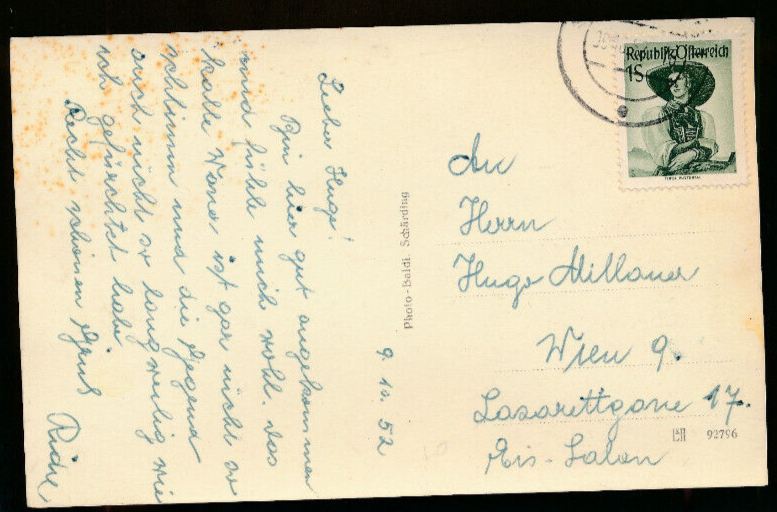 Lieber Hugo!
Bin hier gut angekommen
und fühle mich wohl. Das
kalte Wasser ist gar nicht so
schlimm und die Gegend
auch nicht so langweilig wie
ich gefürchtet habe
Recht schönen Gruß
9. 10. 52
Photo-Baldi Schärding
Republik Österreich
1S
An
Herrn
Hugo
Wien 9.
Lazarettgasse 17.
Eis-Salon
92796